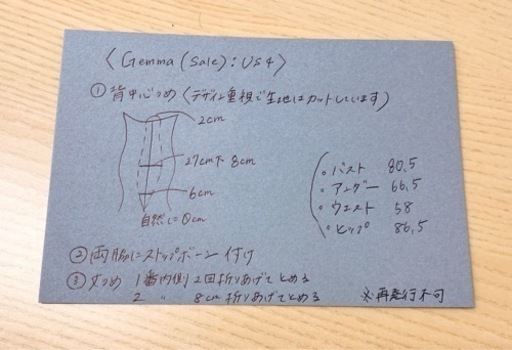 〈 Gemma (Sale): US4 〉
① 背中心つめ (デザイン重視で生地はカットしています)
2cm
27cm下 8cm
6cm
自然に0cm
・バスト 80.5
・アンダー 66.5
・ウエスト 58
・ヒップ 86.5
② 両脇にストップボーン付け
③ 丈つめ 1番内側 2回折りあげてとめる
2 〃 8cm 折りあげてとめる
※再発行不可